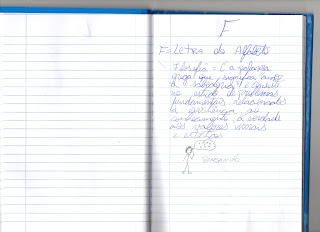 F
F= Letra do Alfabeto
Filosofia = É a palavra
grega que significa "amor
à sabedoria" e consiste
no estudo de problemas
fundamentais relacionados
à existência, ao
conhecimento, à verdade
aos valores morais
e estéticos
PENSANDO